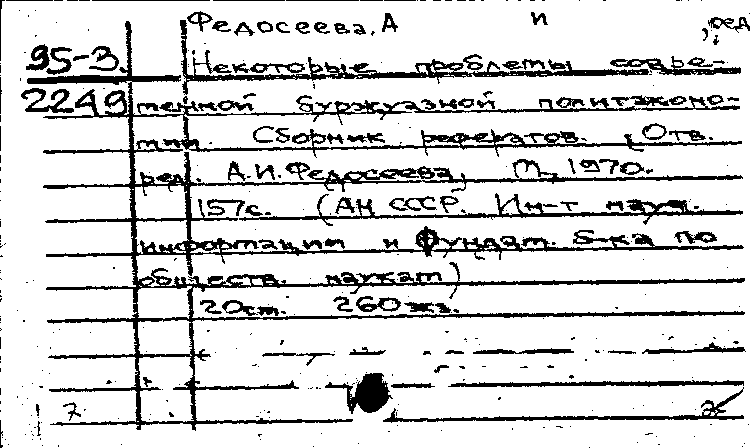 Федосеева, А И , ред.
95-3. Некоторые проблемы совре-
2249 менной буржуазной политэконо-
мии. Сборник рефератов. [Отв.
ред. А.И. Федосеева] М., 1970.
157с. (АН СССР. Ин-т науч.
информации и Фундам. б-ка по
обществ. наукам)
20см. 260 экз.